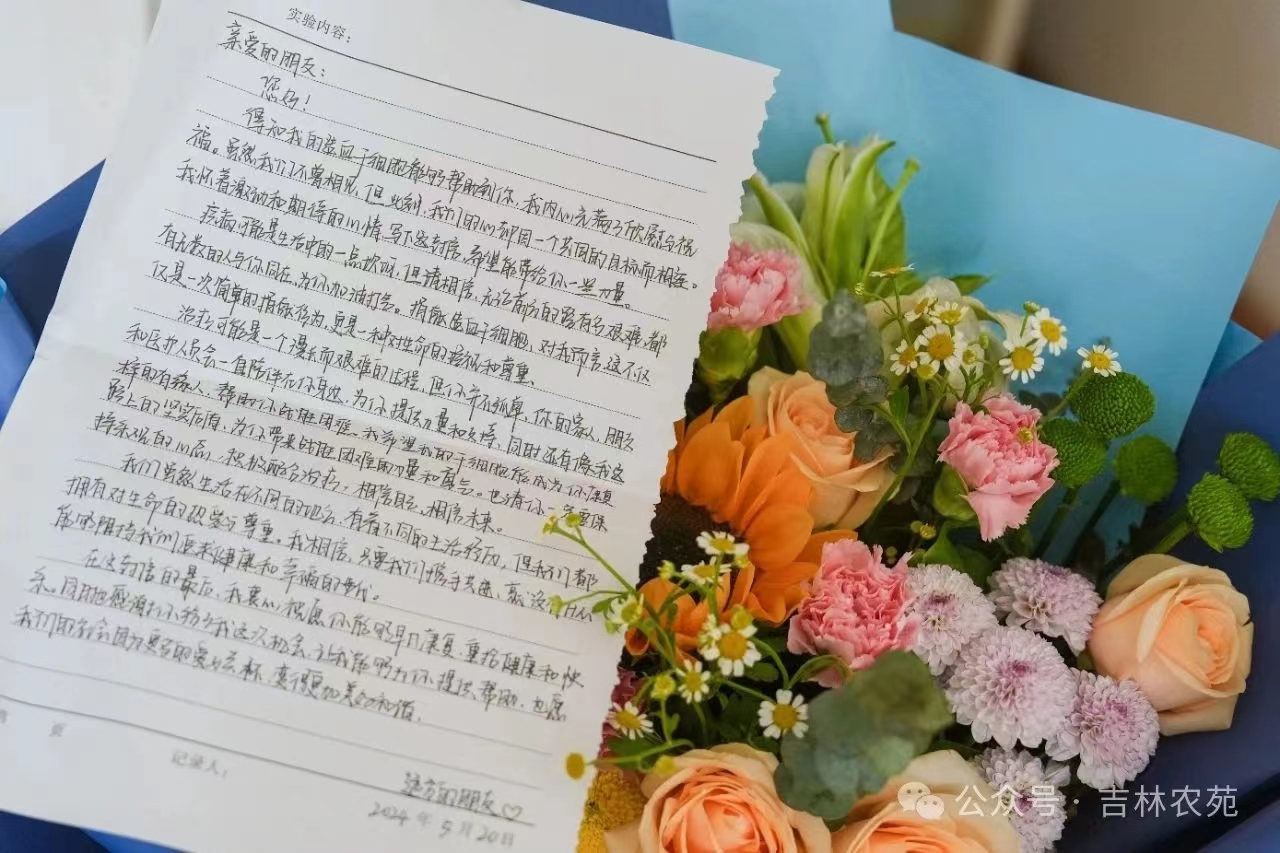 实验内容：
亲爱的朋友：
您好！
得知我的造血干细胞能够帮助到你，我内心充满了欣慰与祝
福。虽然我们不曾相见，但此刻，我们的心却因一个共同的目标而相连。
我怀着激动和期待的心情写下这封信，希望能带给你一些力量。
疾病可能是生活中的一点坎坷，但请相信，无论前方的路有多艰难，都
有无数的人与你同在，为你加油打气。捐献造血干细胞，对我而言，这不仅
仅是一次简单的捐献行为，更是一种对生命的敬畏和尊重。
治疗可能是一个漫长而艰难的过程，但你并不孤单，你的家人、朋友
和医护人员会一直陪伴在你身边，为你提供力量和支持，同时还有像我这
样的有缘人，帮助你战胜困难。我希望我的干细胞能成为你康复
路上的坚实后盾，为你带来战胜困难的力量和勇气。也请你一定要保
持乐观的心态，积极配合治疗，相信自己，相信未来。
我们虽然生活在不同的地方，有着不同的生活经历，但我们都
拥有对生命的热爱与尊重。我相信，只要我们携手共进，就没有什么
能够阻挡我们追求健康和幸福的步伐。
在这封信的最后，我衷心祝愿你能够早日康复，重拾健康和快
乐。同时也感谢你给了我这次机会，让我能够为你提供帮助，也愿
我们的社会因为更多的爱与关怀，变得更加美好和谐。
页
记录人：
远方的朋友♡
2024年5月20日
公众号·吉林农苑